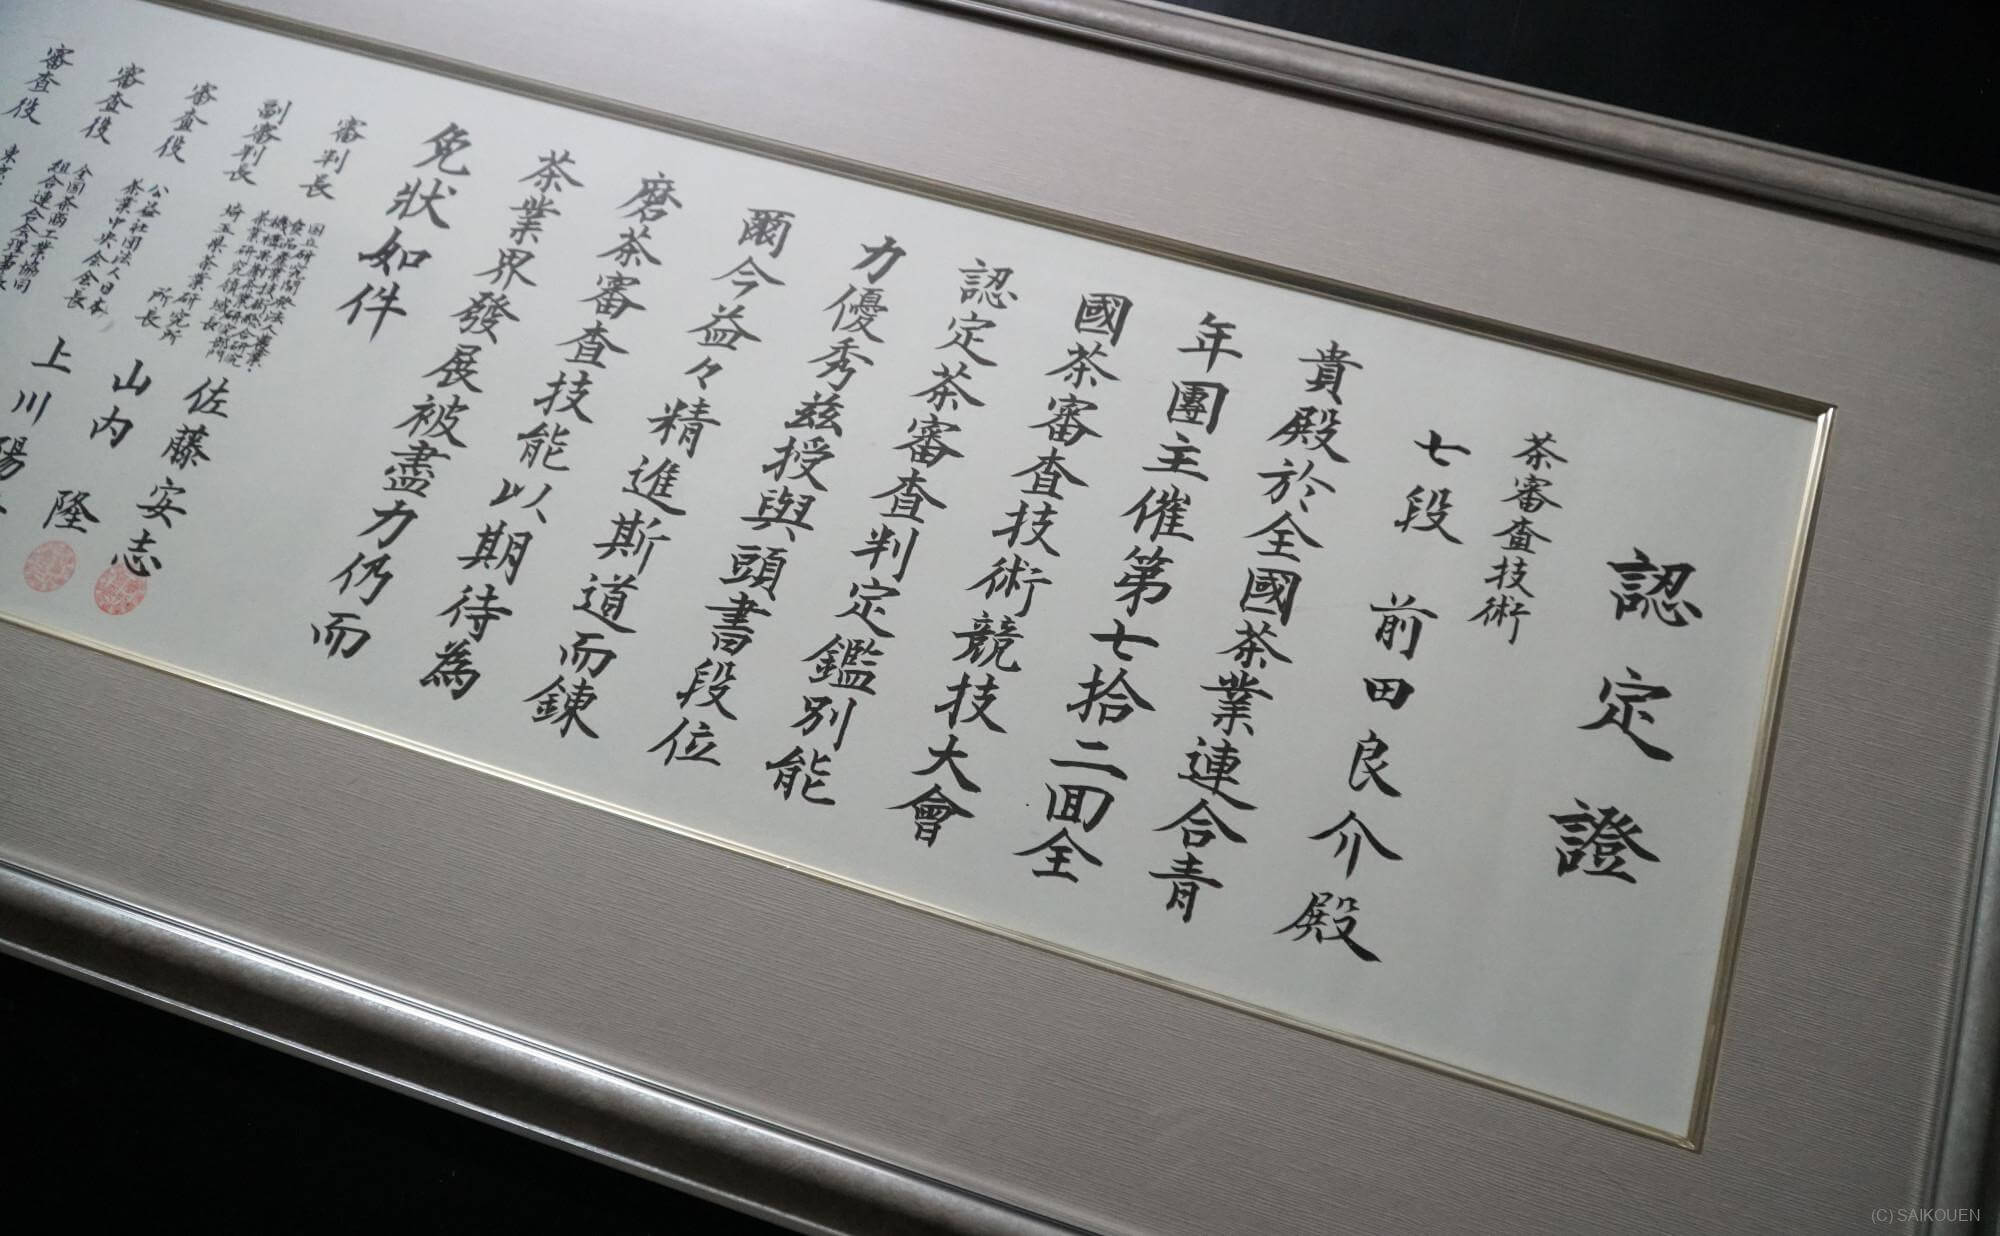 認定證
茶審査技術
七段 前田良介殿
貴殿於全國茶業連合青
年團主催第七拾二回全
國茶審査技術競技大會
認定茶審査判定鑑別能
力優秀玆授與頭書段位
爾今益々精進斯道而錬
磨茶審査技能以期待為
茶業界發展被盡力仍而
免状如件
審判長
副審判長
埼玉県茶業研究所
所長
佐藤安志
審査役
公益社団法人日本
茶業中央会会長
山内隆
審査役
全国茶商工業協同
組合連合会理事長
上川陽
審査役
(C) SAIKOUEN